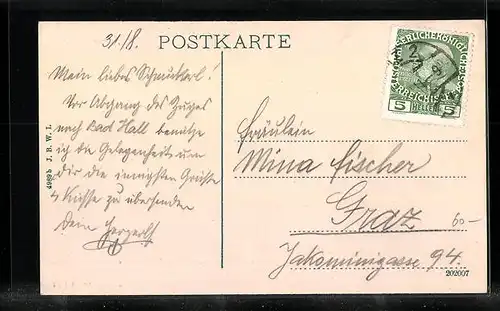 31/8.
POSTKARTE
Mein liebes Schmutterl!
Vor Abgang des Zuges
nach Bad Hall benütze
ich die Gelegenheit um
dir die innigsten Grüße
& Küsse zu übersenden
Dein
4989 b J. B. W. I.
5 HELLER 5
Fräulein
Mina Fischer
Graz
60-
Jakominigasse 94.
202007